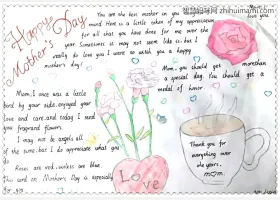 智慧妈咪网 zhihuimami.com
Happy
Mother's Day
You are the best mother in you
love you
mind. Here is a little token of my appreciation
for all that you have done for me over the
year. Sometimes it may not seem like it, but I
really do love you. I want to wish you a happy
mother's day!
Mom, you should get more than
a special day. You should get a
medal of honor
Mom, I once was a little
bird by your side, enjoyed your
love and care, and today I send
you fragrant flowers.
I may not be angels all
of the time, but I do appreciate what you
do.
Roses are red, violets are blue.
This card on Mother's Day is especially
for you
Thank you for
everything over
the years.
mom
Love